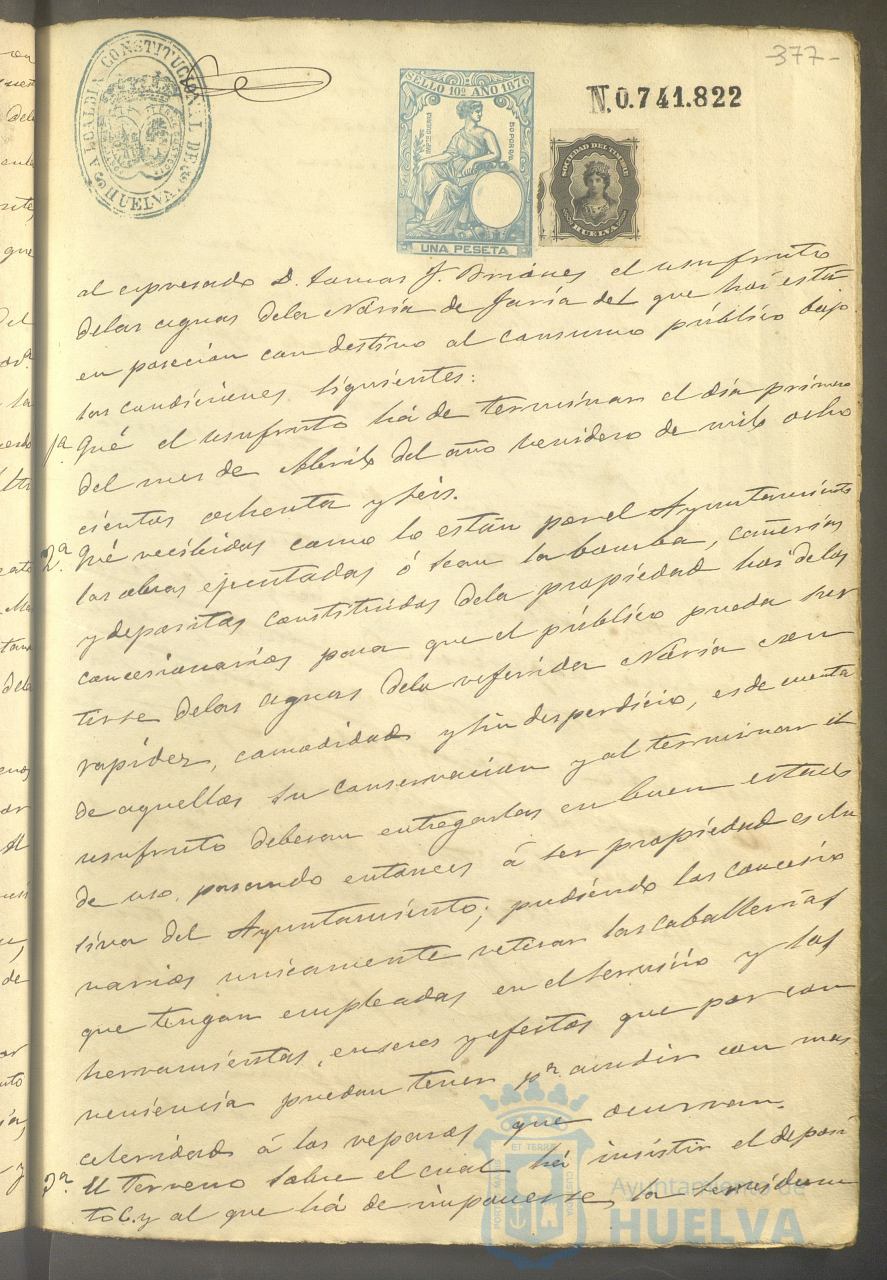 377-
ALCALDIA CONSTITUCIONAL DE
HUELVA
SELLO 10º AÑO 1876
UNA PESETA
N.0.741.822
SOCIEDAD DEL TIMBRE
HUELVA
al espresado D. Tomas J. Briones el usufruto
delas aguas dela Nória de Jaría del que hoi están
en posecion con destino al consumo público bajo
las condiciones siguientes:
1ª Qué el usufruto há de terminar el dia primero
del mes de Abril del año venidero de mil ocho
cientos ochenta y seis.
2ª Qué recibidas como lo están por el Ayuntamiento
las obras ejecutadas ó sean la bomba, cañerias
y depositos constituidos dela propiedad hoi delos
concesionarios para que el público pueda sur
tirse delas aguas dela referida Nória con
rapidez, comodidad y sin desperdicio, es de cuenta
de aquellos su conservacion y al terminar el
usufruto deberan entregarlas en buen estado
de uso, pasando entonces á ser propiedad esclu
siva del Ayuntamiento; pudiendo los concesio
narios unicamente retirar las caballerias
que tengan empleadas en el servicio y las
herramientas, enseres y efectos que por con
veniencia puedan tener pª acudir con mas
celeridad á los reparos que ocurran.
3ª El terreno sobre el cual há insistir el deposi
to C. y al que há de imponerse la servidum
PORTUS MARIS ET TERRE CUSTODIA
Ayuntamiento de
HUELVA